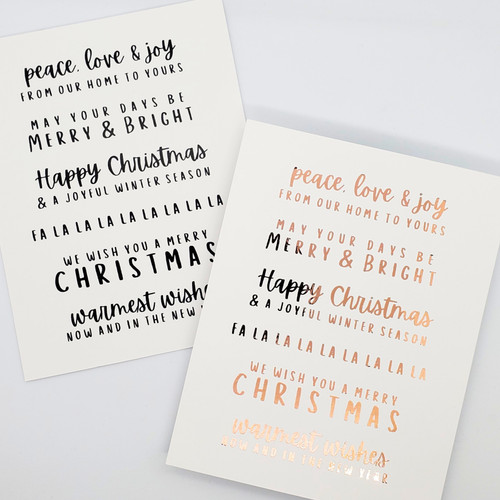 peace, love & joy
FROM OUR HOME TO YOURS
MAY YOUR DAYS BE
MERRY & BRIGHT
Happy Christmas
& A JOYFUL WINTER SEASON
FA LA LA LA LA LA LA LA LA
WE WISH YOU A MERRY
CHRISTMAS
warmest wishes
NOW AND IN THE NEW
peace, love & joy
FROM OUR HOME TO YOURS
MAY YOUR DAYS BE
MERRY & BRIGHT
Happy Christmas
& A JOYFUL WINTER SEASON
FA LA LA LA LA LA LA LA LA
WE WISH YOU A MERRY
CHRISTMAS
warmest wishes
NOW AND IN THE NEW YEAR